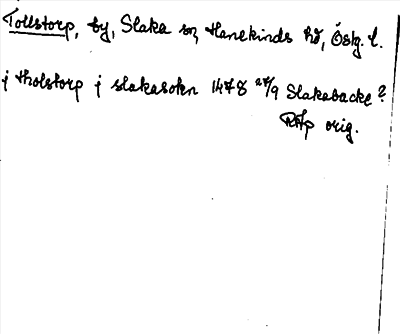 Tollstorp, by, Slaka sn, Hanekinds hd, Östg. l.
j tholstorp j slakasokn 1478 27/9 Slakabacke?
RAp orig.